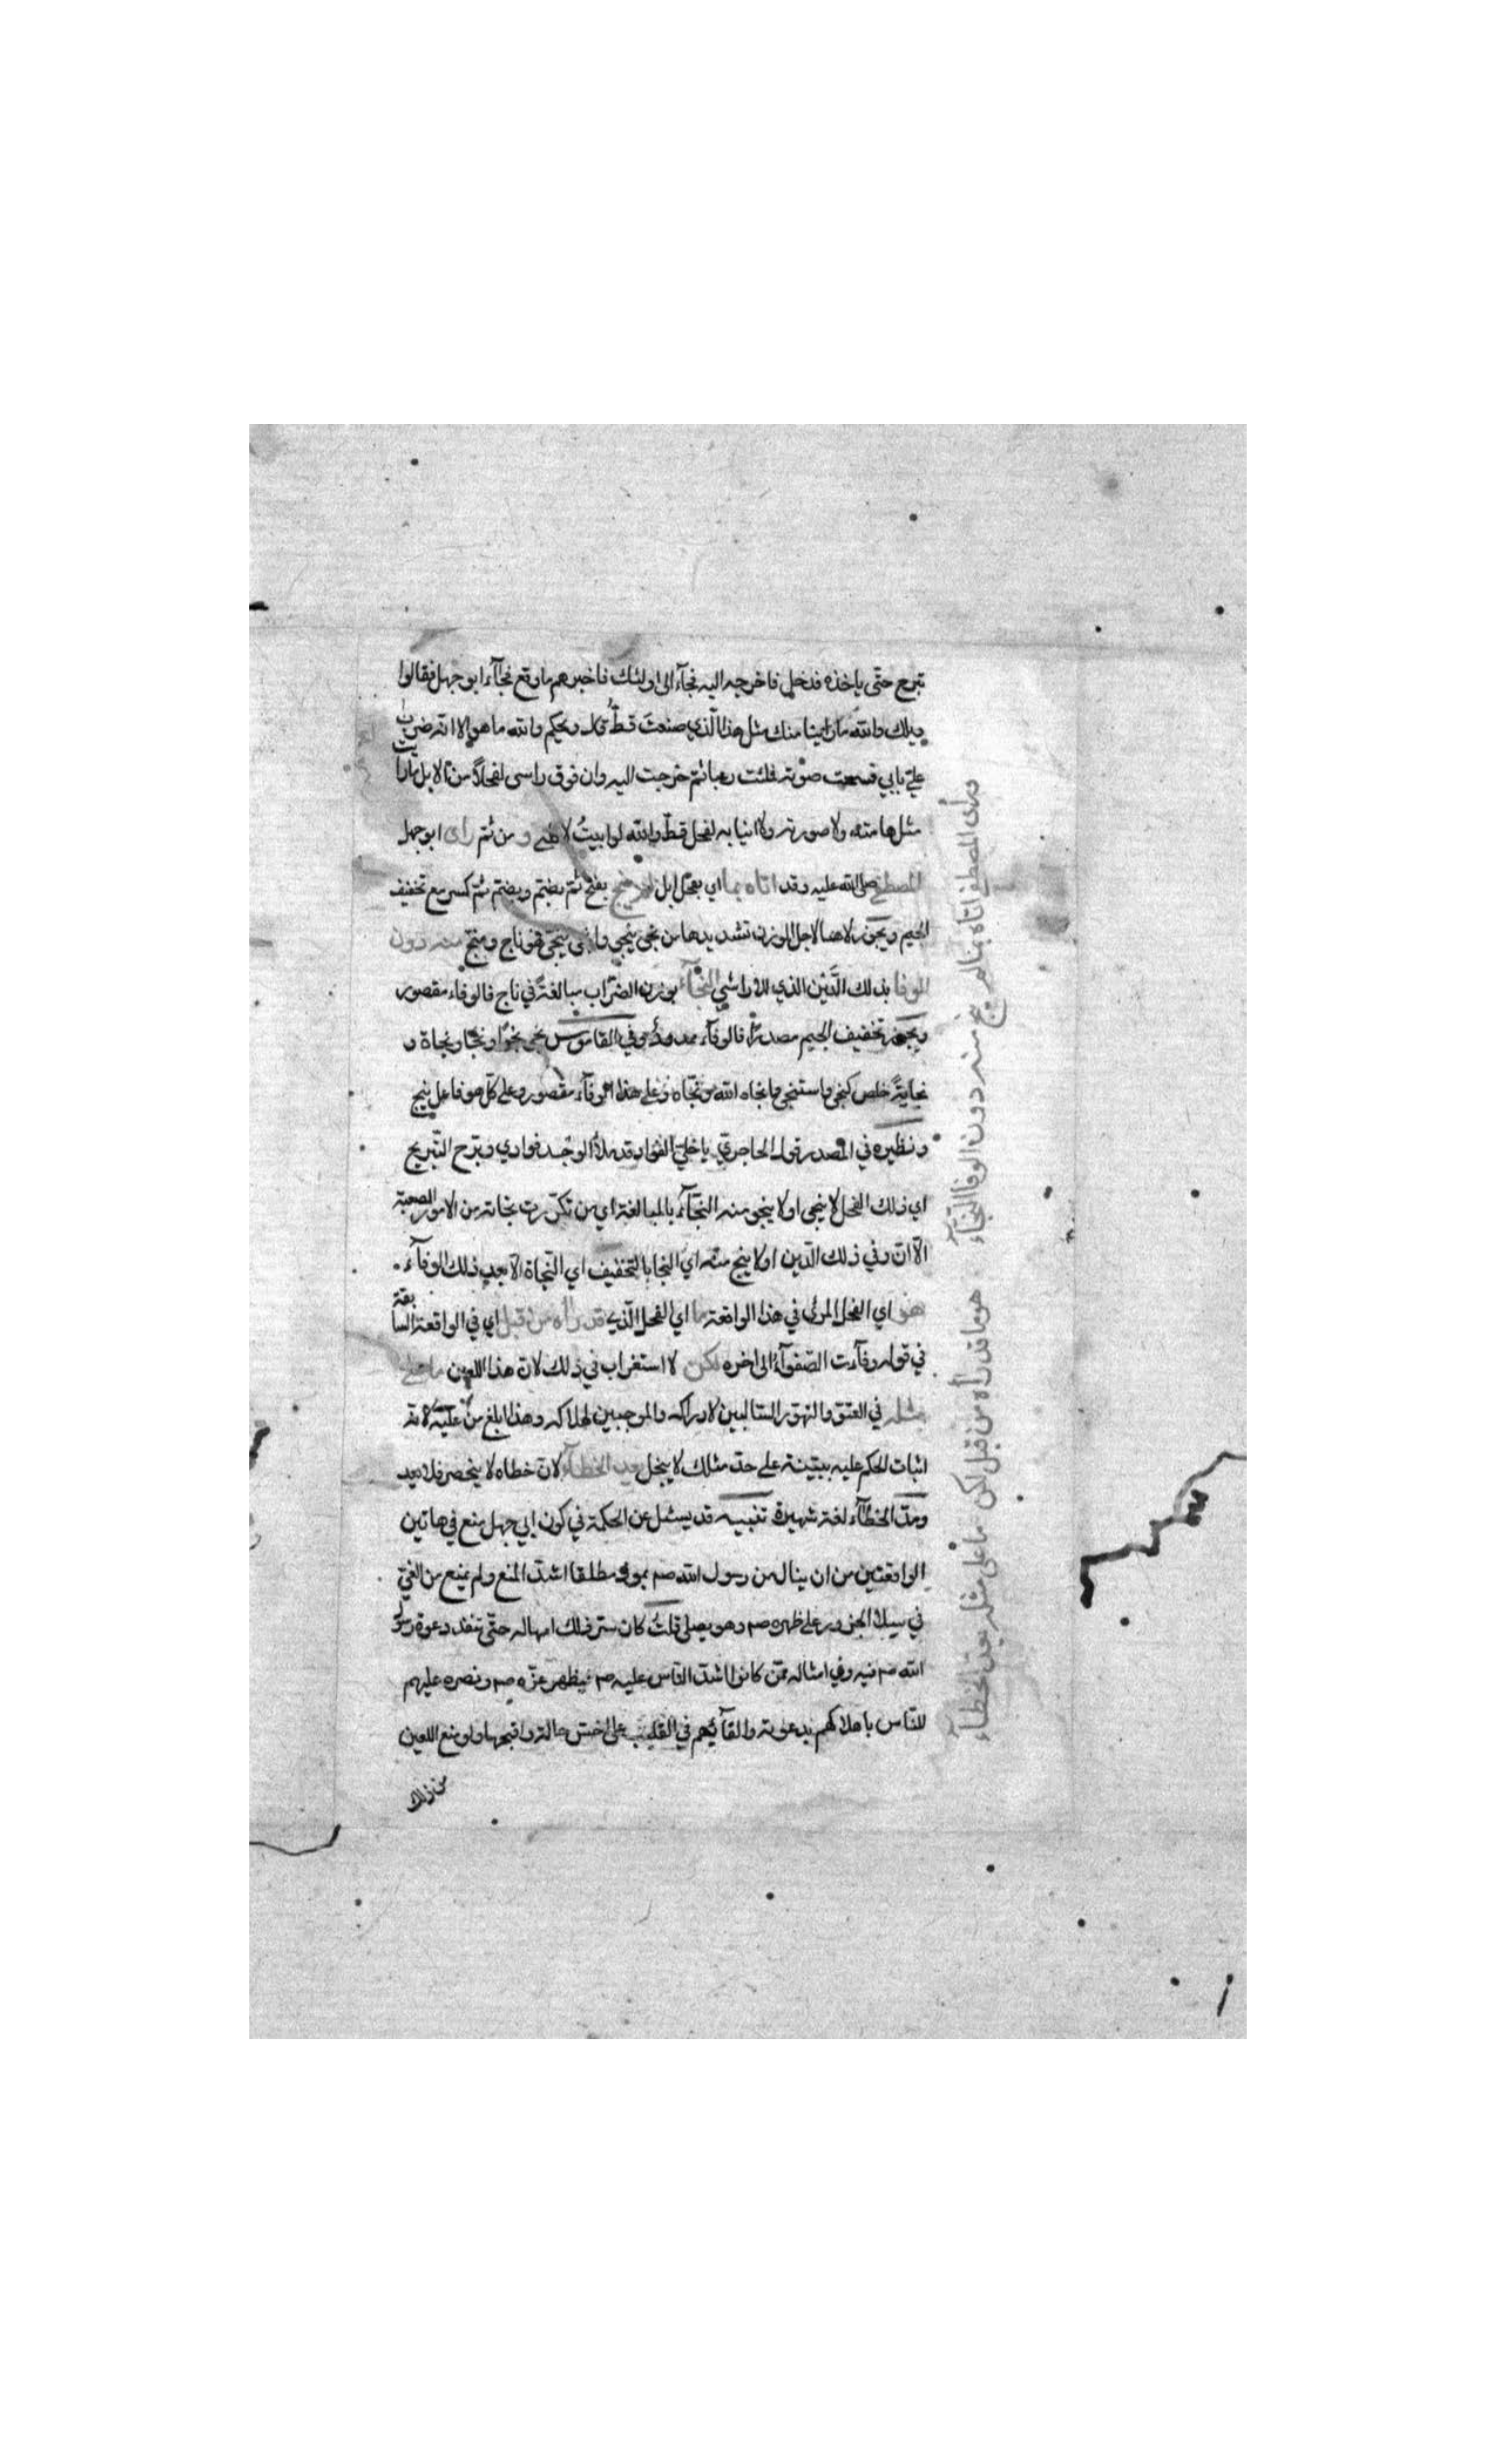 تبرح حتّى ياخذه فدخل فاخرجه اليه فجآء الى اولئك فاخبرهم ماوقع فجآء ابو جهل فقالوا
ويلك والله ما راينا منك مثل هذا الّذي صنعت قطّ قال ويحكم والله ما هو الا انه ضرب
عليّ بابي فسمعت صوته فملئت رعبا ثم خرجت اليه وان فوق راسي لفحلاً من الابل ما رايت
مثل هامته ولا صورته ولا انيابه لفحل قطّ والله لو ابيتُ لاكلني و من ثم راى ابو جهل
المصطفى صلى الله عليه وقد اتاه بما اي بفحل ابل لم ينج بفتح ثم بضم وبضم ثم كسر مع تخفيف
الجيم ويجوز لاهنا لاجل الوزن تشديدها من نجى ينجي وانجى ينجي فهو ناج ومنج منه دون
الوفا بذلك الدّين الذي للاراشي النجآء بوزن الضرّاب مبالغة في ناج فالوفاء مقصور
ويجوز تخفيف الجيم مصدرًا فالوفآء ممدود وفي القاموس نجى نجوًا ونجا ونجاة و
نجاية خلص كنجى واستنجى وانجاه الله ونجّاه وعلى هذا الوفآء مقصور وعلى كل هو فاعل ينج
ونظيره في المصدر قول الحاجري يا خليّ الفؤاد قد ملأ الوجد فوادي وبرّح التّبريح
اي ذلك الفحل لا ينجي او لا ينجو منه النجّآء بالمبالغة اي من تكرّرت نجاته من الامور الصعبة
الّا ان وفي ذلك الدّين او لا ينج منه اي النجا بالتخفيف اي النجاة الا بعد ذلك الوفآء
هو اي الفحل المرئى في هذا الواقعة ما اي الفحل الّذي قد رأه من قبل اي في الواقعة السابقة
في قوله وفآءت الصّفوآء الى اخره لكن لا استغراب في ذلك لان هذا اللعين ما على
مثله في العتو والتهور السّالبين لادراكه والموجبين لهلاكه وهذا ابلغ من عليه لانه
اثبات الحكم عليه ببيّنة على حدّ مثلك لا يبخل يعد الخطآء لان خطاه لا ينحصر فلا يعد
ومدّ الخطآء لغة شهيرة تنبيه قد يسئل عن الحكمة في كون ابي جهل منع في هاتين
الواقعتين من ان ينال من رسول الله صم بمولم مطلقا اشدّ المنع ولم يمنع من القي
في سبلا الجزور على ظهره صم وهو يصلي قلت كان سرّ ذلك امهاله حتّى تنفذ دعوة رسول
الله صم فيه وفي امثاله ممّن كانوا اشدّ الناس عليه صم فيظهر عزّه صم ونصره عليهم
للنّاس باهلاكهم بدعوته والقآئهم في القليب على اخسّ حالة واقبحها ولو منع اللعين
من ذلك
وراى المصطفى اتاه بما لم ينج منه دون الوفا النجآء
هو ما قد رأه من قبل لكن ما على مثله يعد الخطآء